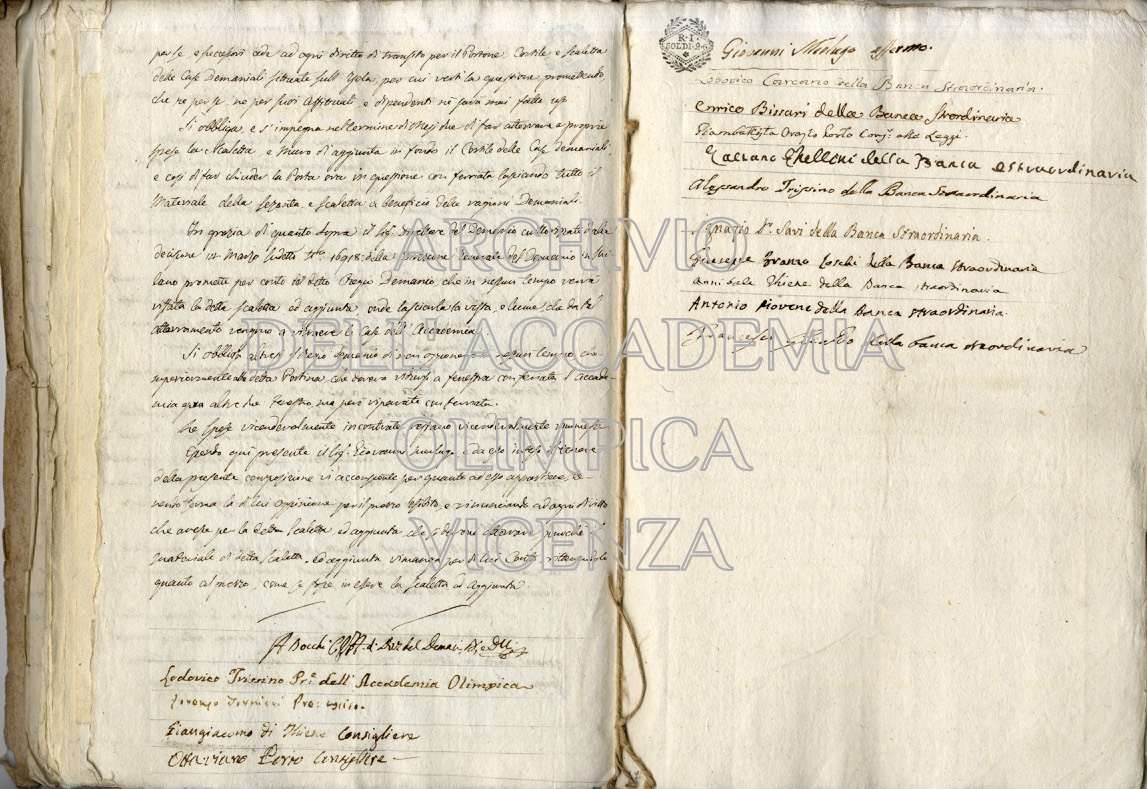 per se, e successori cede ad ogni diritto di transito per il Portone Cortile e Scaletta
delle Case Demaniali situate sull' Isola, per cui verti la questione, promettendo,
che ne per se, ne per suoi Affittuali, e dipendenti ne sarà mai fatto uso
Si obbliga, e s'impegna nel termine di Mesi due di far atterrare a proprie
spese la Scaletta, e Muro d'aggiunta in fondo il Cortile delle Case demaniali,
e così di far chiuder la Porta ora in questione con ferrata lasciando tutto il
Materiale della e Scaletta a beneficio delle ragioni Demaniali.
In grazia di quanto sopra il Sig. Direttore del Demanio autorizzato dalla
decisione 14 Marzo sudetto della Direzione Generale del Demanio in Mi
lano promette per conto del detto Regio Demanio che in nessun tempo verrà
rifatta la detta Scaletta ed aggiunta, onde lasciar la vista, e lume, che da tal
atterramento vengono a ritraere le Case dell' Accademia.
Si obbliga altresì il Regio Demanio di non opponersi in nessun tempo, che
superiormente alla detta Portina che doverà ridursi a fenestra con ferrata l'Accade-
mia apra altre due fenestre, ma però riparate con ferrata.
Le spese vicendevolmente incontrate restano vicendevolmente rimesse
Essendo qui presente il Sig. Giovanni e da esso inteso il tenore
della presente composizione vi acconsente per quanto ad esso appartiene, te-
nendo ferma la di lui opinione per il prezzo esibito, e rinunciando ad ogni diritto
che avesse per la detta Scaletta ed aggiunta che si devono atterrare purchè il
Materiale di detta Scaletta, ed aggiunta rimanga per di lui Conto
quanto al prezzo, come se fosse in essere la Scaletta ed Aggiunta
Lodovico Trissino Pr.e dell' Accademia Olimpica
Giangiacomo di Thiene Consigliere
Ottaviano Porto Consigliere
R. I.
SOLDI
Giovanni affermo.
Lodovico della Banca Straordinaria.
Enrico Bissari della Banca Straordinaria
Giambattista Orazio Porto Cons.r alle Leggi.
Gaetano Ghellini della Banca estraordinaria
Alessandro Trissino della Banca Straordinaria
Ignazio Savi della Banca Straordinaria.
Giuseppe Franzo Loschi della Banca straordinaria
Annibale Thiene della Banca straordinaria
Antonio Piovene della Banca straordinaria.
della banca straordinaria
ARCHIVIO
DELL'ACCADEMIA
OLIMPICA
VICENZA